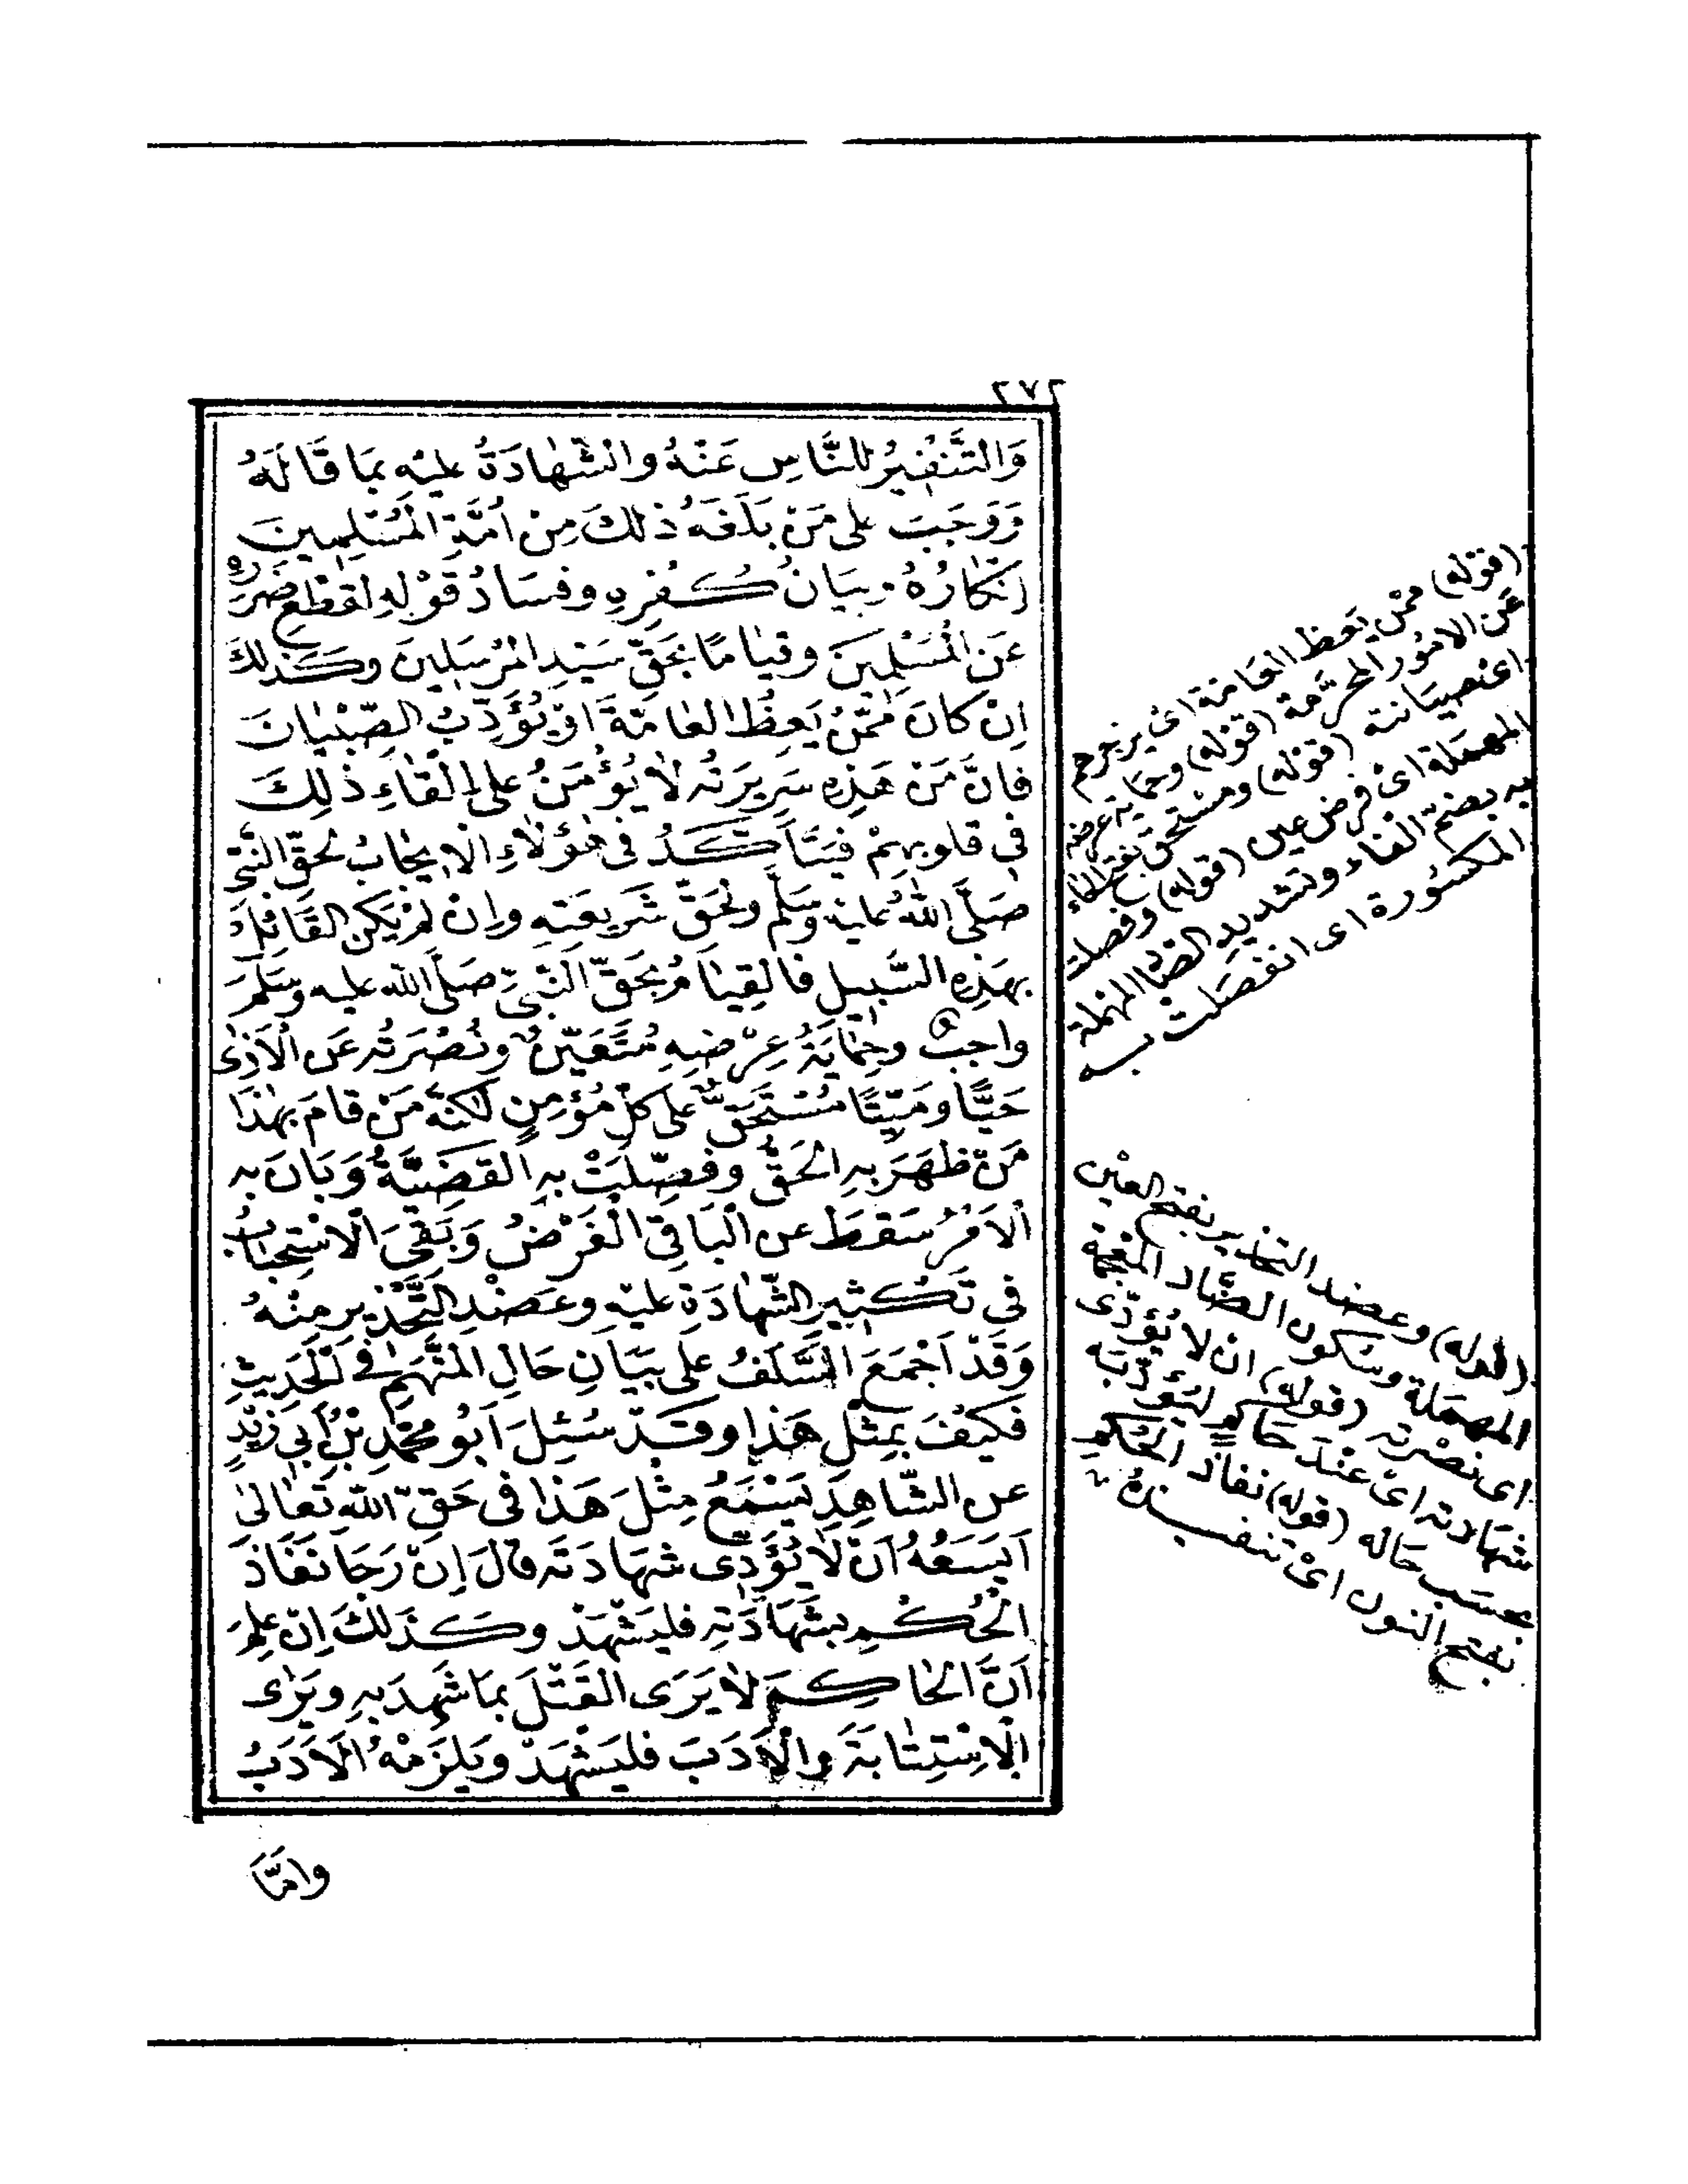 ٢٧٢
وَالتَّنْفِيرُ لِلنَّاسِ عَنْهُ وَالشَّهَادَةُ عليْهِ بمَا قَالَهُ
وَوَجَبَ على مَنْ بَلَغَهُ ذٰلكَ مِنْ اَئِمَّةِ الْمُسْلِمِينَ
اِنْكَارُهُ وبَيَانُ كُفْرِهِ وفسَادُ قَوْلِهِ لقَطْعِ ضَرَرِهِ
عَنِ الْمُسْلِمِينَ وقيامًا بحَقِّ سَيّدِ المُرْسَلِينَ وكَذٰلكَ
اِنْ كانَ مِمَّنْ يَعِظُ العامَّةَ اَوْ يُؤَدِّبُ الصِّبْيَانَ
فانَّ مَنْ هَذِهِ سَرِيرَتُه لا يُؤْمَنُ على اِلْقَاءِ ذٰلِكَ
في قلوبِهِمْ فيَتَأَكَّدُ في هٰؤُلاءِ الايجَابُ لحقِّ النَّبيّ
صَلَّى اللهُ عليْهِ وسَلَّم ولحَقِّ شَرِيعَتِهِ واِن لمْ يَكُنِ القَائِلُ
بهَذِهِ السَّبيل فالقِيَامُ بحَقِّ النَّبيّ صَلَّى الله عليه وسَلَّمَ
واجبٌ وحِمَايَةُ عِرْضِهِ مُتَعَيِّنٌ ونُصْرَتُه عَنِ الْاَذَى
حَيًّا ومَيِّتًا مُسْتَحَقٌّ على كلِّ مُؤْمِنٍ لكنَّهُ مَنْ قامَ بهٰذَا
مَنْ ظَهَرَ بهِ الحَقُّ وفُصِّلَتْ بهِ القَضِيَّةُ وَبَانَ بهِ
الاَمْرُ سَقَطَ عنِ الْبَاقِي الْفَرْضُ وَبَقِيَ الْاِسْتِحْبَابُ
في تَكْثِيرِ الشَّهَادَةِ عليْهِ وعَضْدِ التَّحْذِيرِ مِنْهُ
وَقَدْ اَجْمَعَ السَّلَفُ على بَيَانِ حَالِ المُتَّهَمِ في الْحَدِيثِ
فَكَيْفَ بِمِثْلِ هَذا وقَدْ سُئِلَ اَبُو محَمَّدِ بْنُ اَبي زَيْدٍ
عن الشَّاهِدِ يَسْمَعُ مِثْلَ هَذا في حَقِّ اللهِ تَعَالىٰ
اَيَسَعُهُ اَنْ لَا يُؤَدِّى شَهَادَتَه قالَ اِنْ رَجَا نَفَاذَ
الْحُكْمِ بشَهَادَتِهِ فليَشْهَدْ وكَذَلِكَ اِنْ عَلِمَ
اَنَّ الحَاكِمَ لا يَرَى القَتْلَ بمَا شَهِدَ بهِ ويَرَى
الْاِسْتِتَابَةَ والْاَدَبَ فليَشْهَدْ ويَلْزَمُهُ الْاَدَبُ
وامَّا
(قوله) ممّن يَعظ العَامّة اى يزجرهم
عن الامور المحرّمة (قوله) وحماية عرضه
اى صيانته (قوله) ومستحق بفتح الحاء
المهملة اى فرض عين (قوله) وفصلت
به بضمّ الفاء وتشديد الصّاد المهملة
المكسورة اى انفصَلت به
(قوله) وعضد التحذير بفتح العين
المهمَلة وسكون الضّاد المعجمة
اى نصرته (قوله) ان لا يؤدّى
شهادته اى عند حاكم ليؤدّبه
بحسَب حاله (قوله) نفاذ الحكم
بفتح النون اى تنفيذه